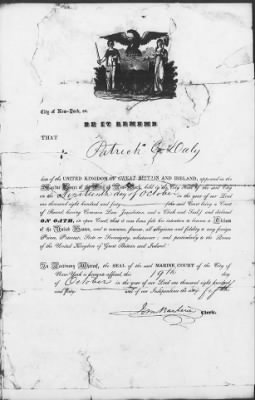 City of New-York, ss.
BE IT REMEMB
THAT
Patrick Daly
of the UNITED KINGDOM OF GREAT BRITAIN AND IRELAND, appeared in the
Marine Court of the City of New-York, held at the City Hall of the said City
on the day of October in the year of our Lord
one thousand eight hundred and forty (the said Court being a Court
of Record having Common Law Jurisdiction, and a Clerk and Seal) and declared
ON OATH, in open Court, that it was bona fide his intention to become a Citizen
of the United States, and to renounce forever, all allegiance and fidelity to any foreign
Prince, Potentate, State or Sovereignty, whatsoever; and particularly to the Queen
of the United Kingdom of Great Britain and Ireland.
In Testimony Whereof, the SEAL of the said MARINE COURT of the City of
New York is hereto affixed, this 19th day
of October in the year of our Lord one thousand eight hundred
and Forty of our Independence the
Clerk.